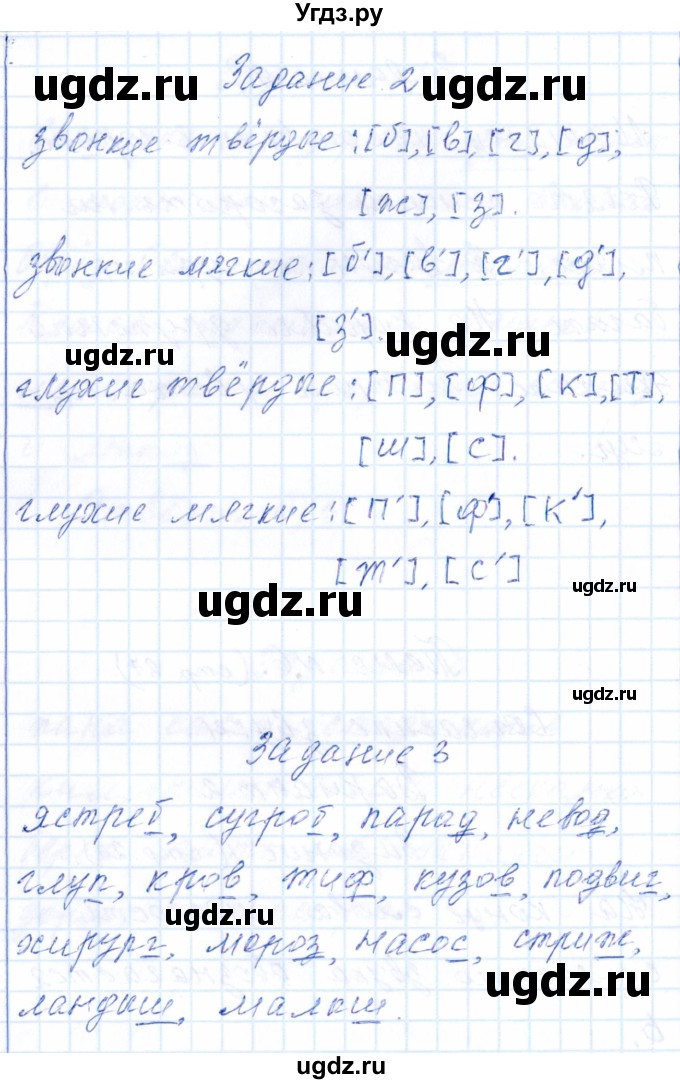 Угдз.ру
Задание 2
звонкие твёрдые: [б], [в], [г], [д],
[ж], [з].
звонкие мягкие: [б'], [в'], [г'], [д'],
[з'].
глухие твёрдые: [п], [ф], [к], [т],
[ш], [с].
глухие мягкие: [п'], [ф'], [к'],
[т'], [с']
Задание 3
ястреб, сугроб, парад, невод,
глуп, кров, тиф, кузов, подвиг,
хирург, мороз, насос, стриж,
ландыш, малыш.
ugdz.ru
ugdz.ru
ugdz.ru
ugdz.ru
ugdz.ru
ugdz.ru
ugdz.ru
ugdz.ru
ugdz.ru
ugdz.ru